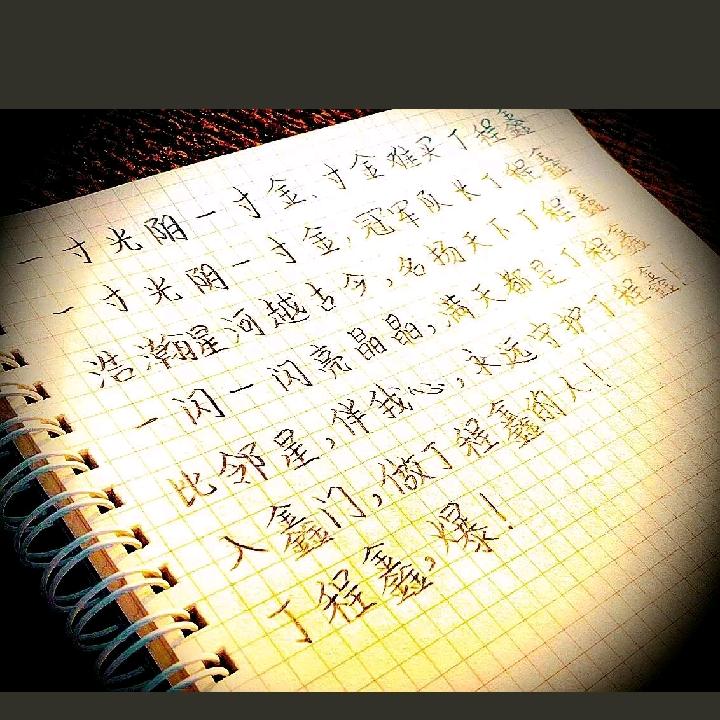 一寸光阳一寸金，寸金难买丁程鑫
一寸光阴一寸金，冠军队长丁程鑫
浩瀚星河越古今，名扬天下丁程鑫
一闪一闪亮晶晶，满天都是丁程鑫
比邻星，伴我心，永远守护丁程鑫！
入鑫门，做丁程鑫的人！
丁程鑫，爆！